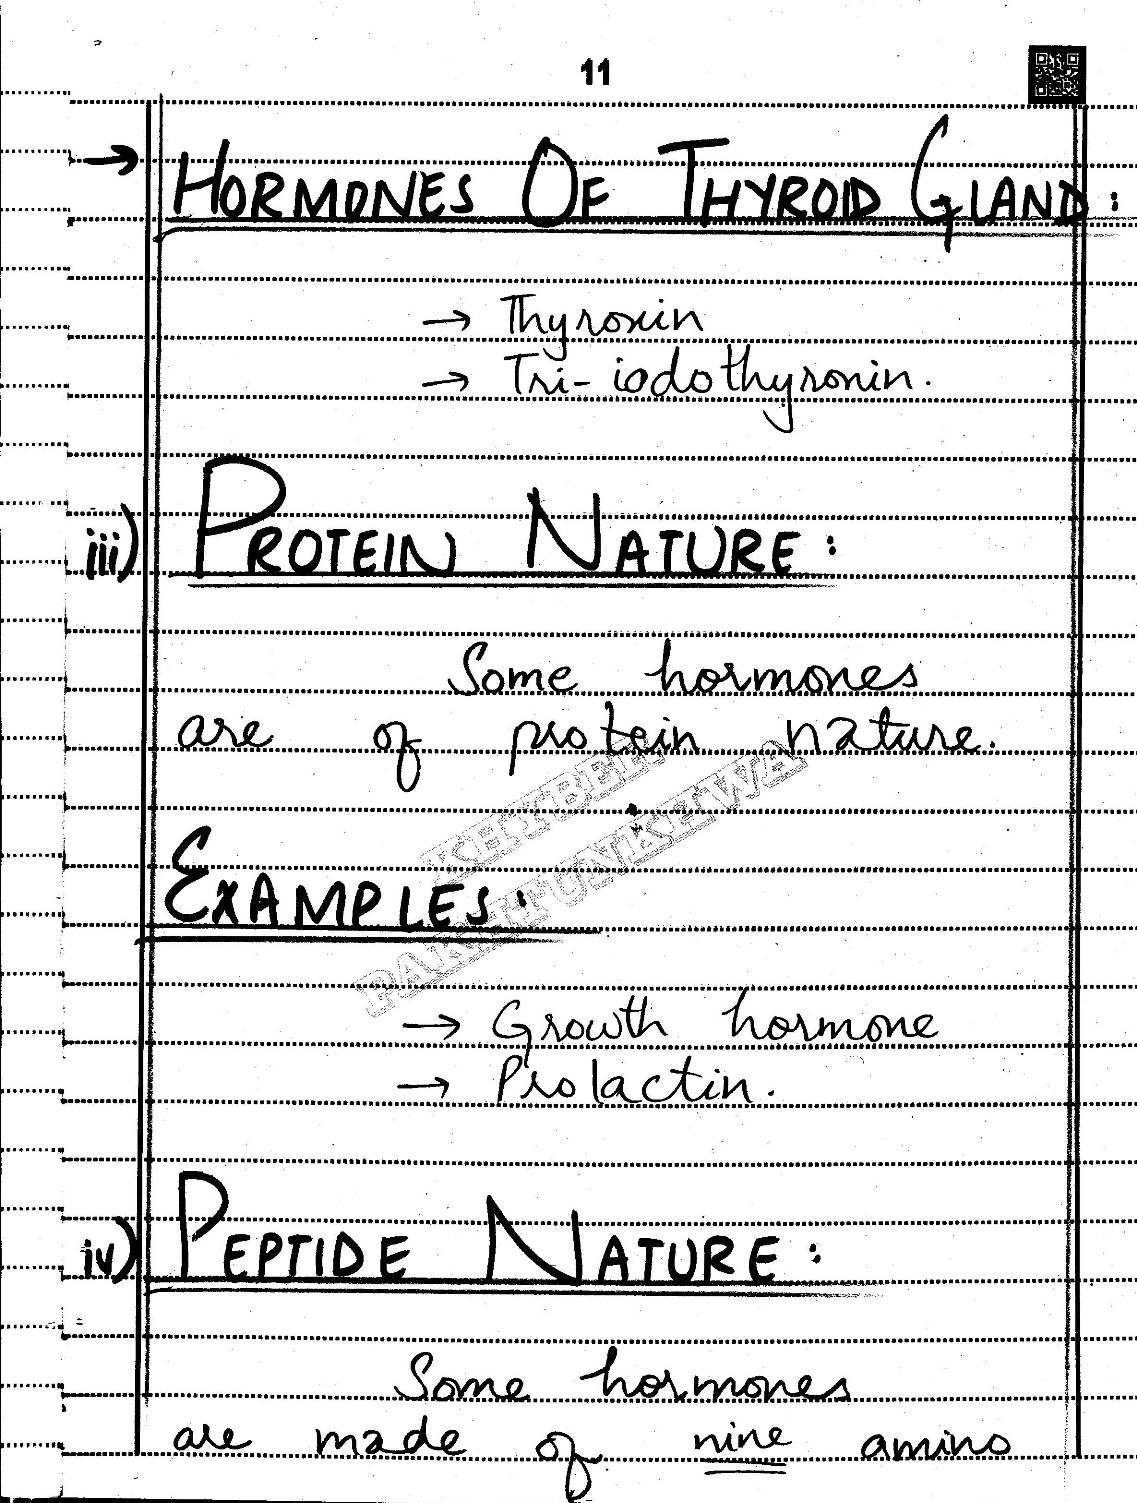 11
→ HORMONES OF THYROID GLAND:
→ Thyroxin
→ Tri-iodothyronin.
iii) PROTEIN NATURE:
Some hormones
are of protein nature.
KHYBER
PAKHTUNKHWA
EXAMPLES:
→ Growth hormone
→ Prolactin.
iv) PEPTIDE NATURE:
Some hormones
are made of nine amino